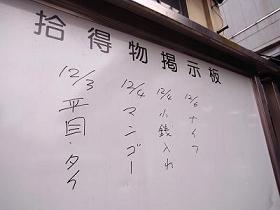 拾得物掲示板
12/6 ナイフ
12/4 小銭入れ
12/4 マンゴー
12/3 平目・タイ